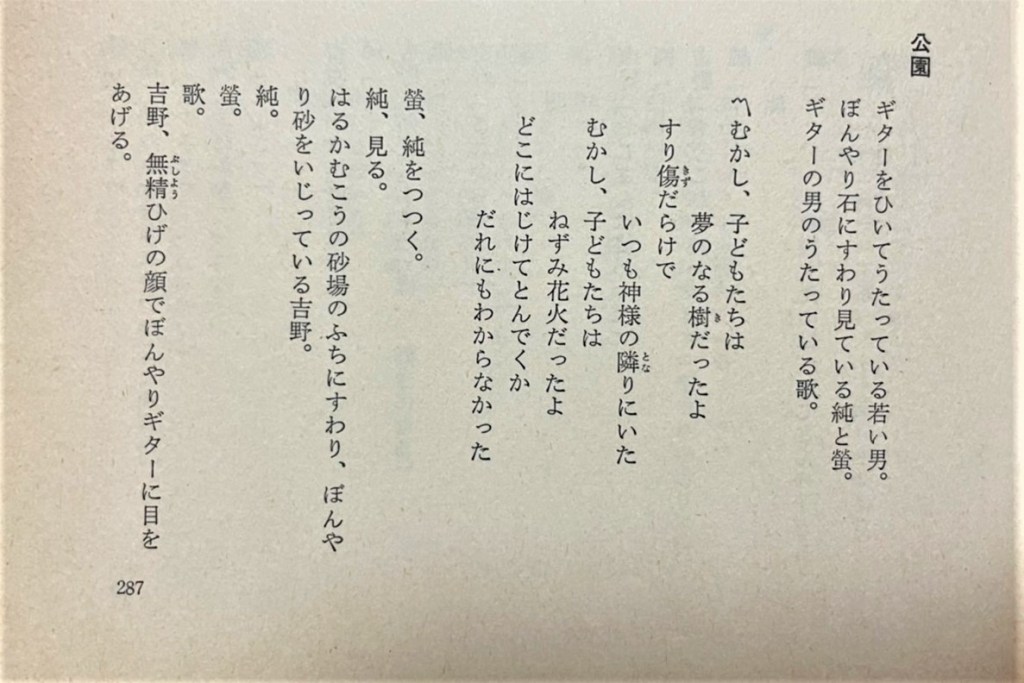 公園
ギターをひいてうたっている若い男。
ぼんやり石にすわり見ている純と螢。
ギターの男のうたっている歌。
〽むかし、子どもたちは
夢のなる樹だったよ
すり傷だらけで
いつも神様の隣りにいた
むかし、子どもたちは
ねずみ花火だったよ
どこにはじけてとんでくか
だれにもわからなかった
螢、純をつつく。
純、見る。
はるかむこうの砂場のふちにすわり、ぼんや
り砂をいじっている吉野。
純。
螢。
歌。
吉野、無精ひげの顔でぼんやりギターに目を
あげる。
287